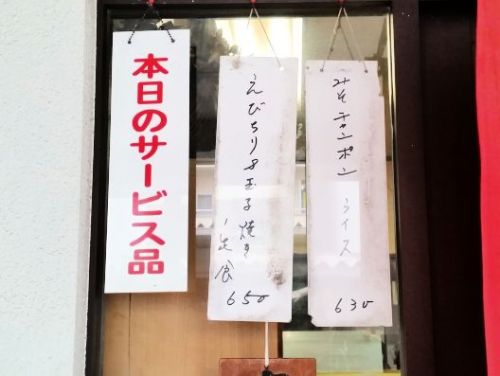 本日のサービス品
みそチャンポン ライス
630
えびちり&玉子焼き
定食
650